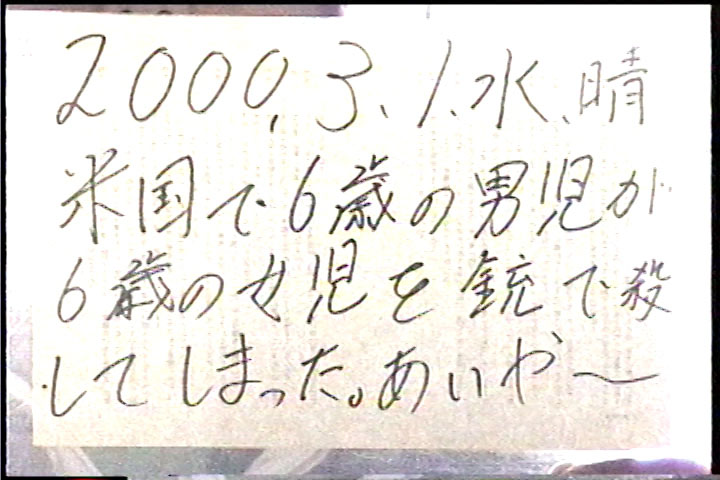 2000.3.1.水、晴
米国で6歳の男児が
6歳の女児を銃で殺
してしまった。あいや〜